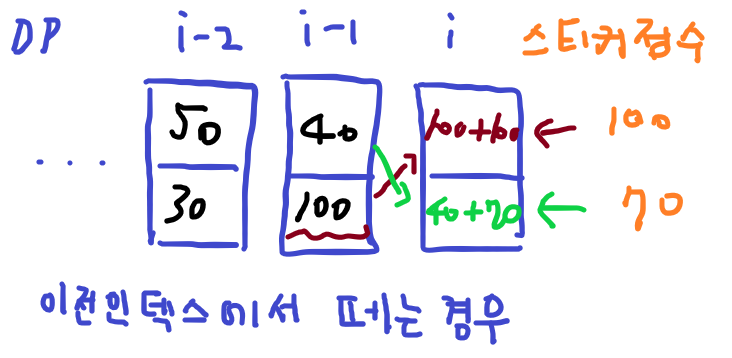 DP i-2 i-1 i 스티커점수
50 40 100+100 ← 100
... 30 100 40+70 ← 70
이전인덱스에서 떼는 경우